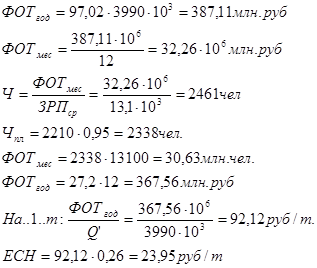 ФОТгод = 97,02·3990·10³ = 387,11млн.руб
ФОТмес = 387,11·10⁶/12 = 32,26·10⁶ млн.руб
Ч = ФОТмес/ЗРПср = 32,26·10⁶/13,1·10³ = 2461чел
Чпл = 2210·0,95 = 2338чел.
ФОТмес = 2338·13100 = 30,63млн.чел.
ФОТгод = 27,2·12 = 367,56млн.руб
На..1..т: ФОТгод/Q' = 367,56·10⁶/3990·10³ = 92,12руб/т.
ЕСН = 92,12·0,26 = 23,95руб/т